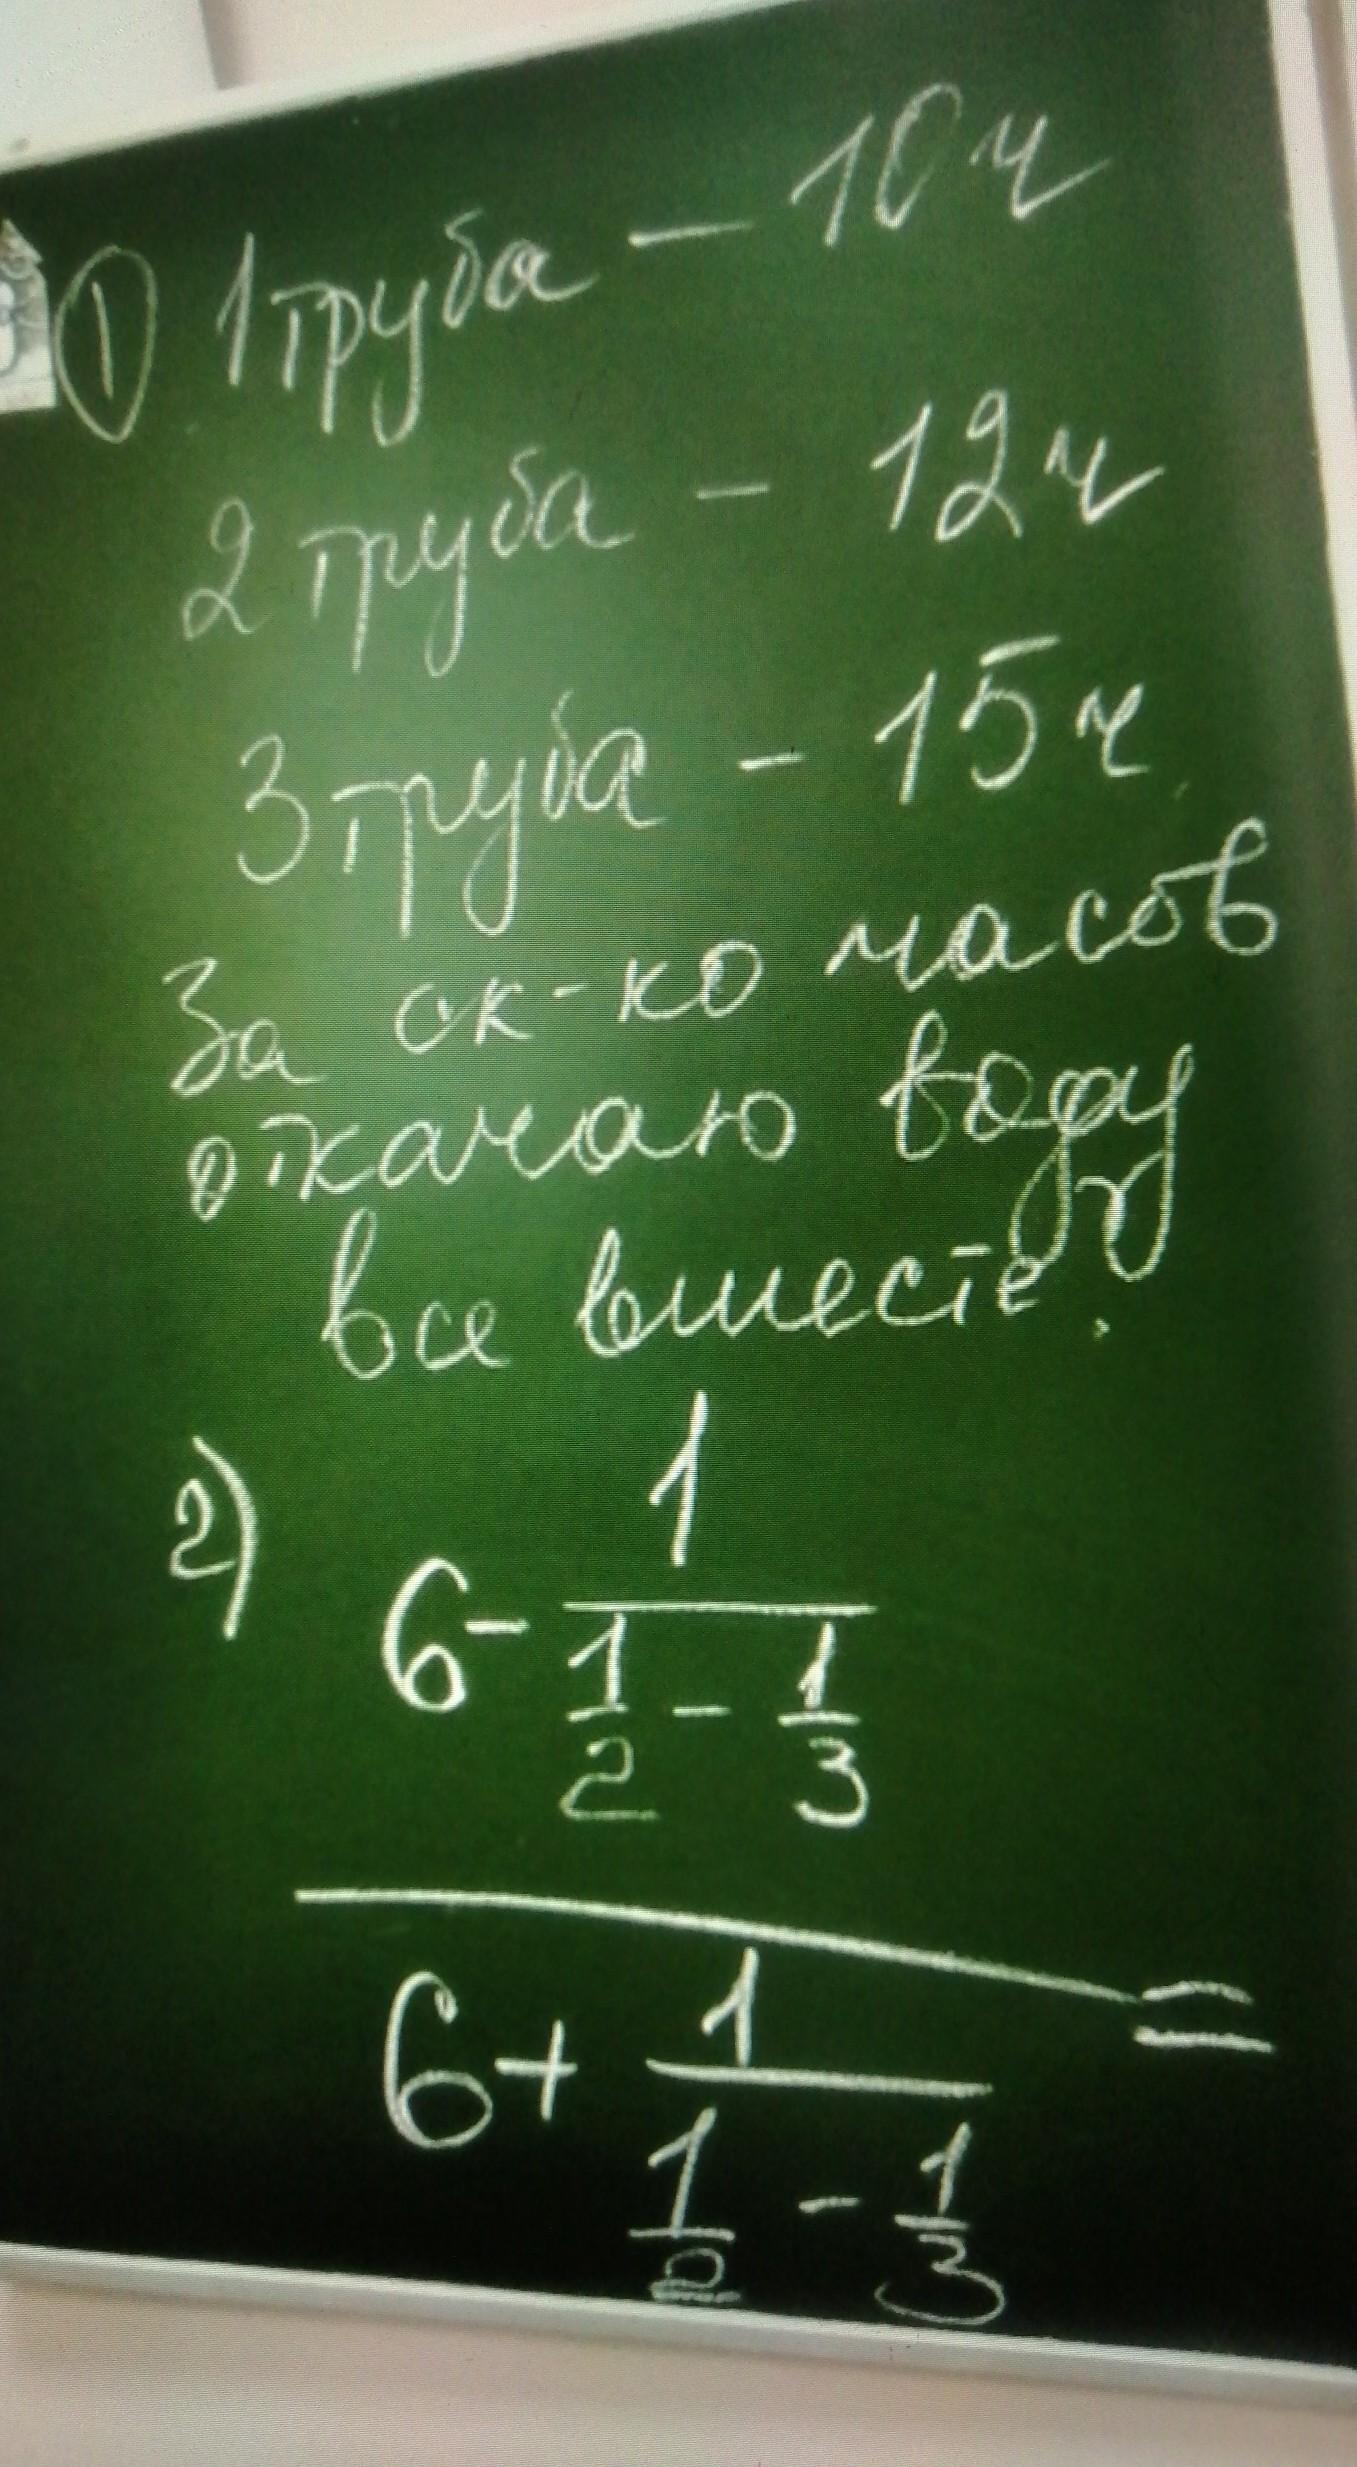 ① 1 труба – 10 ч
2 труба – 12 ч
3 труба – 15 ч.
За ск-ко часов
откачаю воду
все вместе.
2)
1
6 –
1/2 – 1/3
=
1
6 +
1/2 – 1/3